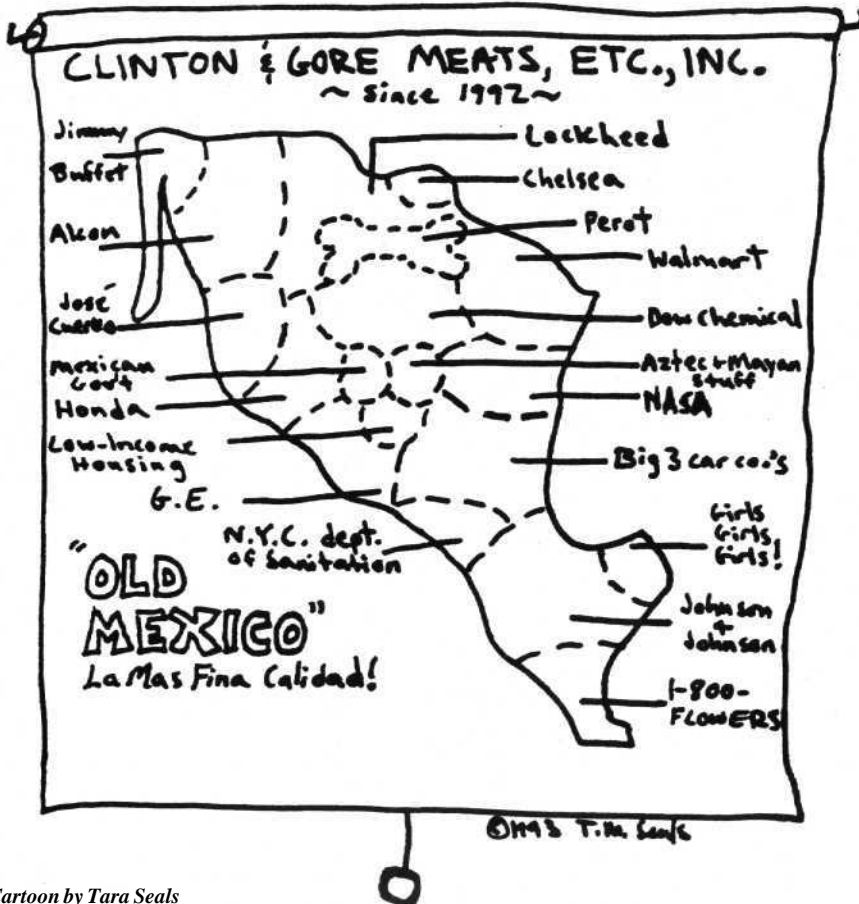 CLINTON & GORE MEATS, ETC., INC.
~ since 1992 ~
Jimmy
Buffet
Alcon
José
Cuervo
Mexican
Gov't
Honda
Low-Income
Housing
G.E.
N.Y.C. dept.
of Sanitation
Lockheed
Chelsea
Perot
Walmart
Dow Chemical
Aztec & Mayan
stuff
NASA
Big 3 car co.'s
Girls
Girls,
Girls!
Johnson
&
Johnson
1-800-
FLOWERS
"OLD
MEXICO"
La Mas Fina Calidad!
©1993 T.M. Seals
Cartoon by Tara Seals